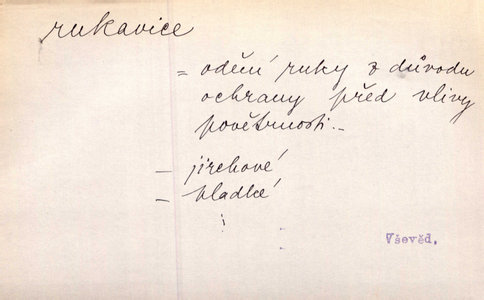 rukavice
= odění ruky z důvodu
ochrany před vlivy
povětrnosti. –
– jirchové
– hladké
Vševěd.